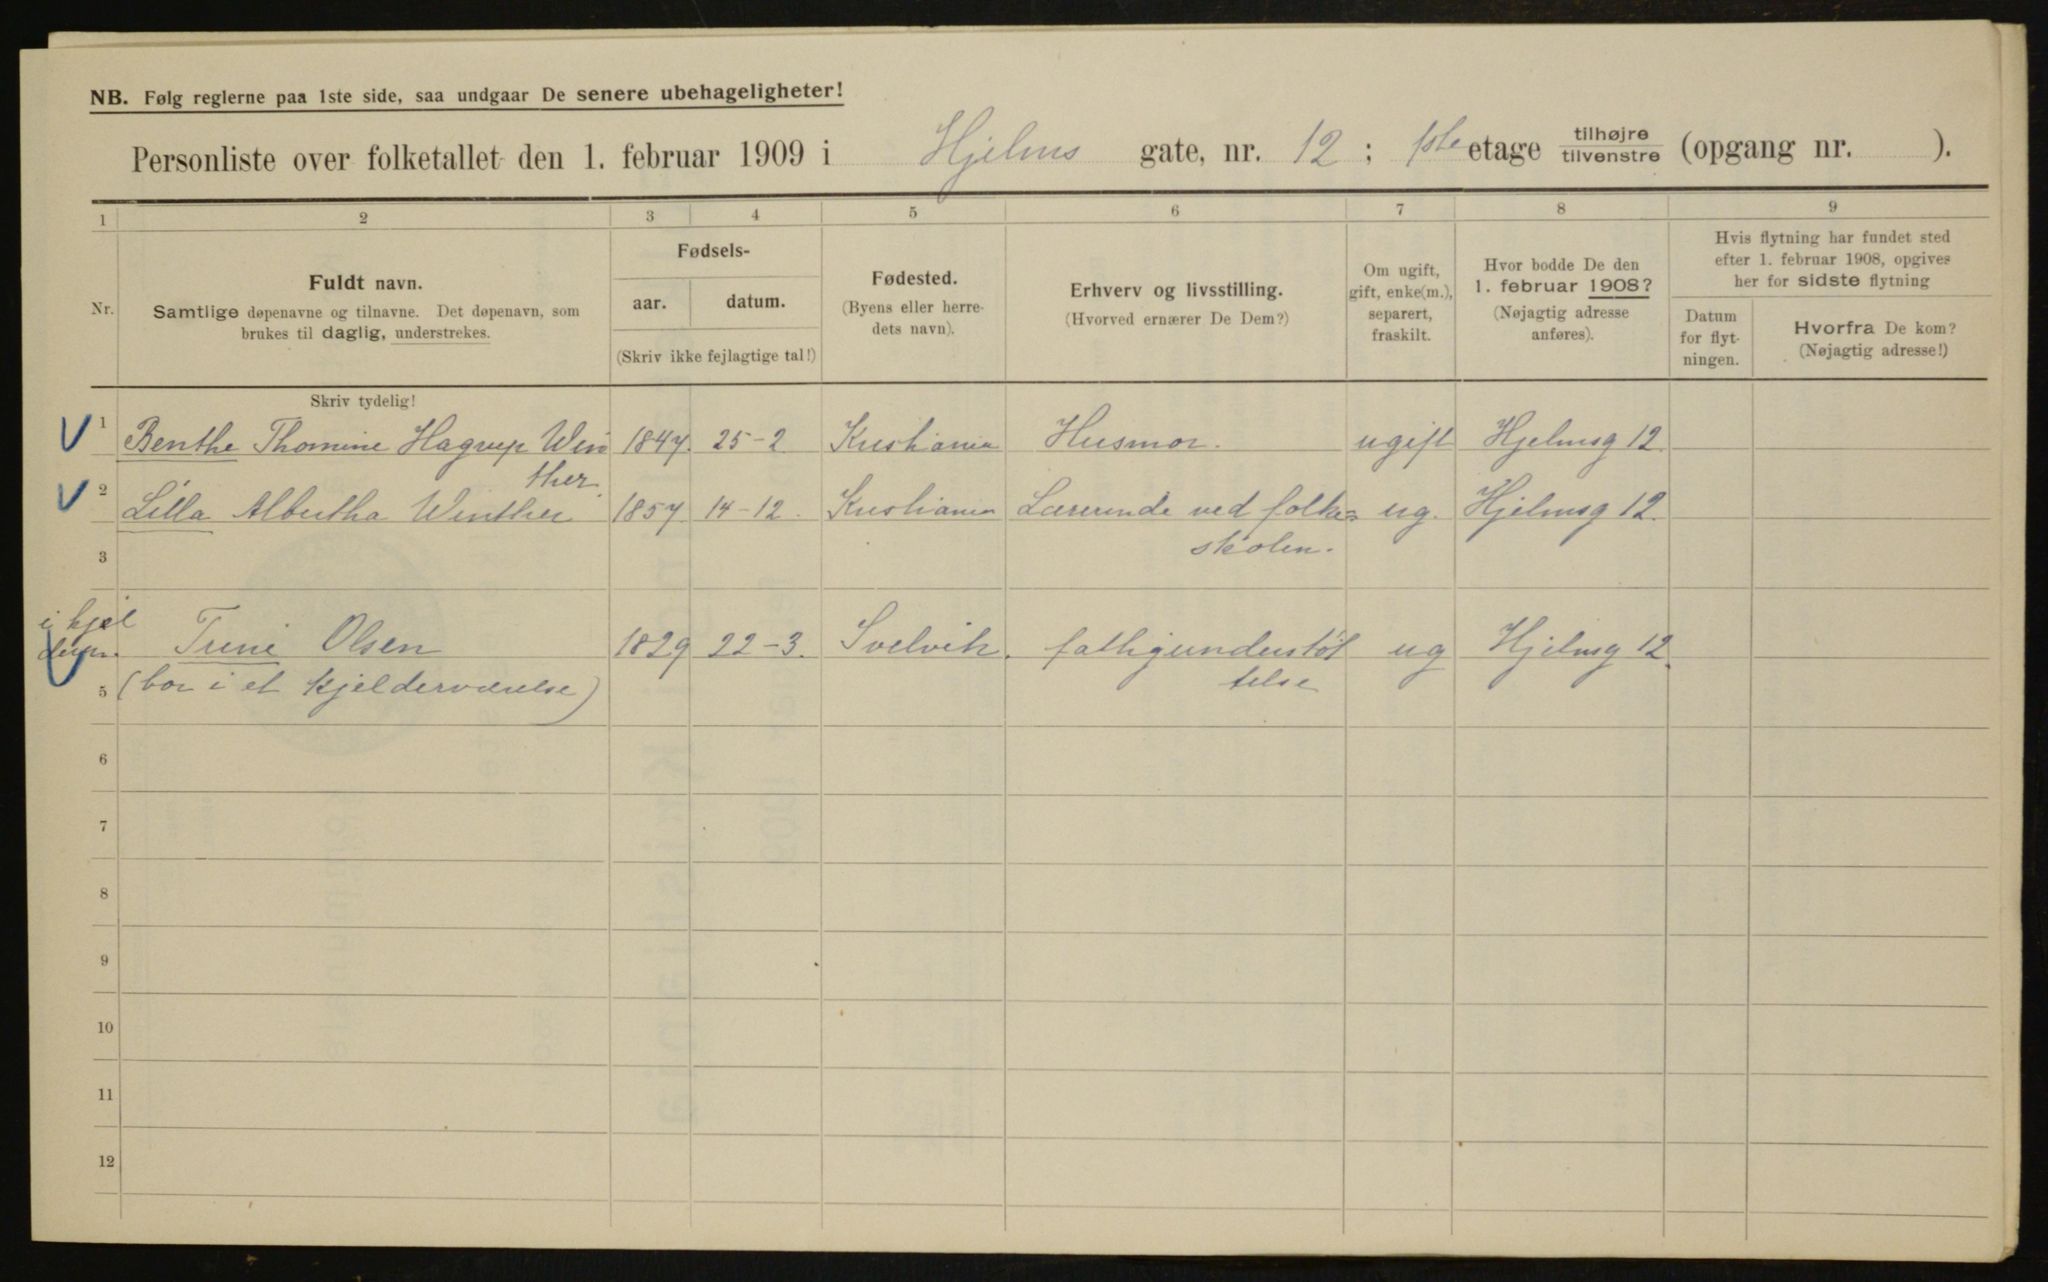 NB. Følg reglerne paa 1ste side, saa undgaar De senere ubehageligheter!
Personliste over folketallet den 1. februar 1909 i Hjelms gate, nr. 12 ; 1ste etage tilhøjre tilvenstre (opgang nr. ).
1 2 3 4 5 6 7 8 9
Nr.
Fuldt navn.
Samtlige døpenavne og tilnavne. Det døpenavn, som
brukes til daglig, understrekes.
Fødsels-
aar. datum.
(Skriv ikke fejlagtige tal!)
Fødested.
(Byens eller herre-
dets navn).
Erhverv og livsstilling.
(Hvorved ernærer De Dem?)
Om ugift,
gift, enke(m.),
separert,
fraskilt.
Hvor bodde De den
1. februar 1908?
(Nøjagtig adresse
anføres).
Hvis flytning har fundet sted
efter 1. februar 1908, opgives
her for sidste flytning
Datum
for flyt-
ningen.
Hvorfra De kom?
(Nøjagtig adresse!)
Skriv tydelig!
1 Benthe Thomine Hagrup Win 1847. 25-2. Kristiania Husmor. ugift Hjelmsg 12.
ther.
2 Lilla Albertha Winther 1857. 14-12. Kristiania Lærerinde ved folke= ug. Hjelmsg 12.
skolen.
3
i kjel
deren. Trine Olsen 1829 22-3. Svelvik. fattigunderstøt ug Hjelmsg 12.
telse
5 (bor i et kjelderværelse)
6
7
8
9
10
11
12